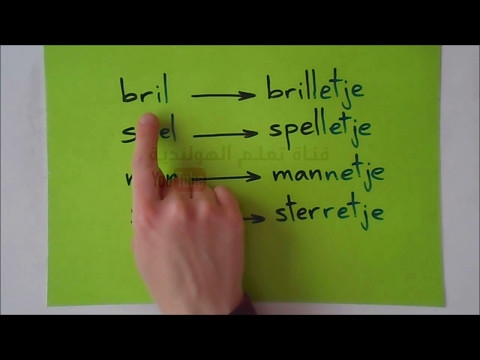 bril → brilletje
spel → spelletje
→ mannetje
→ sterretje
قناة تعلم الهولندية
YouTube